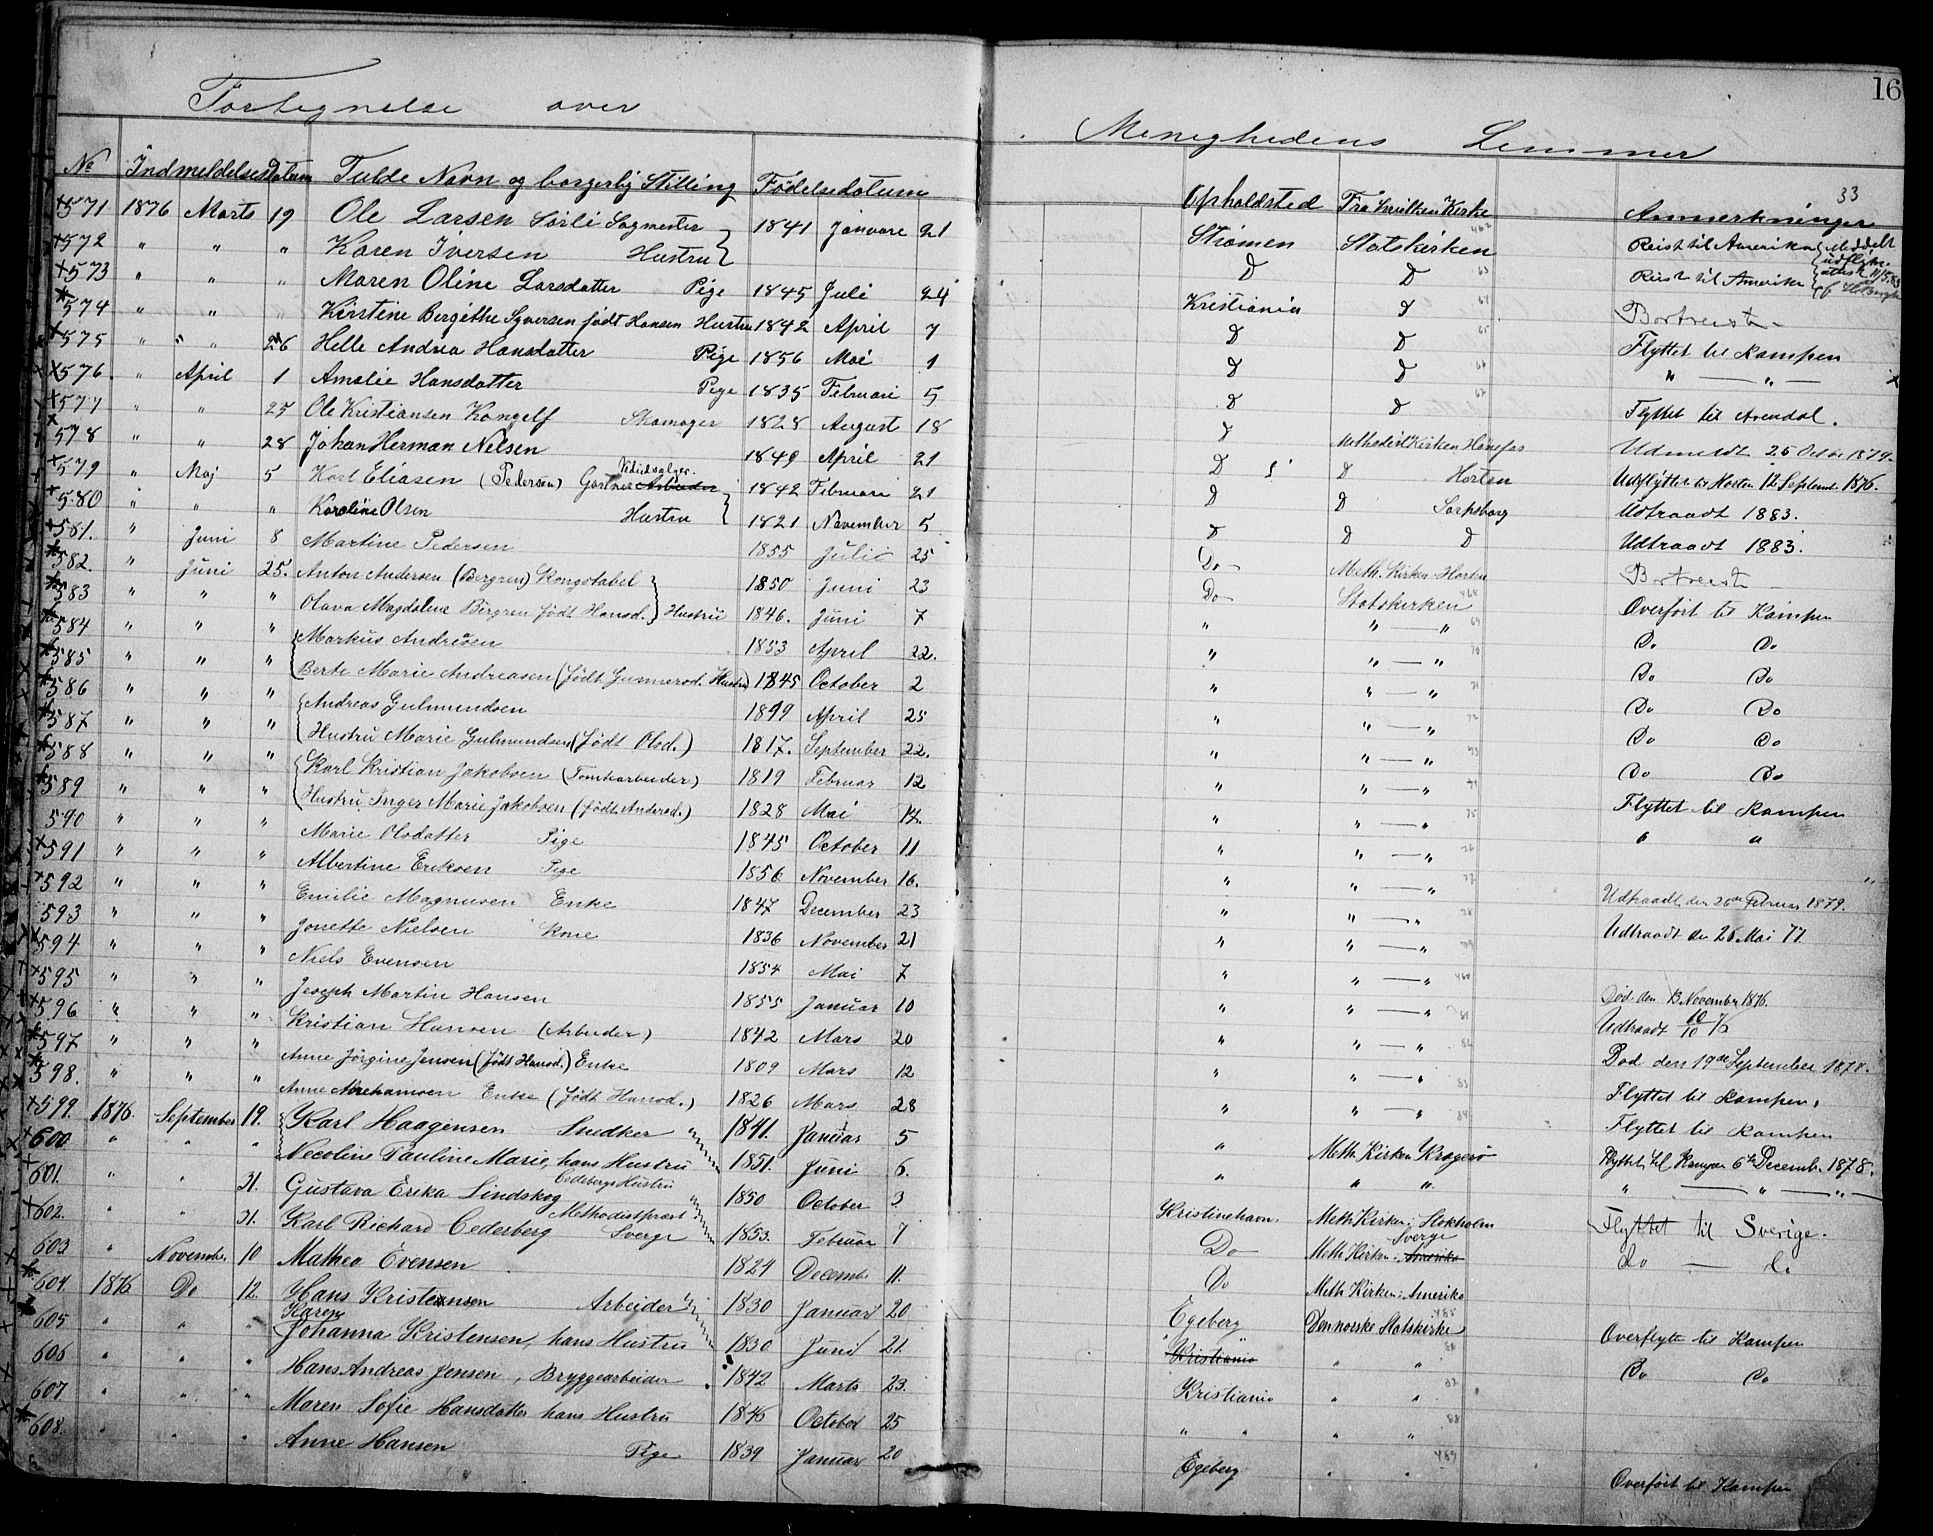 16
Fortegnelse over Menighedens Lemmer
33
No Indmeldelsesdatum Fulde Navn og borgerlig Stilling Fødelsedatum Opholdsted Fra hvilken Kirke Anmerkninger
571 1876 Marts 19 Ole Larsen Sørli Sagmester 1841 Januare 21 Strømen Statskirken 462 Reist til Amerika
572 " " " Karen Iversen Hustru D D 63 Reist til Amerika
573 " " " Maren Oline Larsdatter Pige 1845 Juli 24 Kristiania D 64 Bortreist
574 " " " Kirstine Bergithe Syversen født Hansen Hustru 1842 April 7 D D 65 Flyttet til Kampen
575 " " 26 Helle Andrea Hansdatter Pige 1856 Mai 1 D D 66 " — " —
576 " April 1 Amalie Hansdatter Pige 1835 Februari 5 D D 67 Flyttet til Arendal.
577 " " 25 Ole Kristiansen Kongelf Skomager 1828 August 18 D Methodist Kirken Hønefos Udmeldt 25 Octbr 1879.
578 " " 28 Johan Herman Nelsen 1849 April 21 D D Horten Udflyttet til Horten 12 Septemb. 1876.
579 " Maj 5 Karl Eliasen (Pedersen) Gartner Arbeider 1842 Februari 21 D D Sarpsborg Udtraadt 1883.
580 " " " Karoline Olsen Hustru 1821 November 5 D D D Udtraadt 1883.
581. " Juni 8 Martine Pedersen 1855 Julii 25 Do Meth. Kirken Horten Bortreist
582 " Juni 25. Anton Andersen (Bergren) Kongstabel 1850 Juni 23 Do Statskirken 468 Overført til Kampen
583 " " " Olava Magdalene Bergren født Hansd. Hustru 1846. Juni 7 " " — " 69 Do Do
584 " " " Markus Andresen 1853 April 22. " " — " 70 Do Do
585 " " " Berte Marie Andreasen (født Gunnerod. Hustru) 1845 October 2 " " — " 71 Do Do
586 " " " Andreas Gulmundsen 1899 April 25 " " — " 72 Do Do
587 " " " Hustru Marie Gulmundsen (født Olsd.) 1817. September 22. " " — " 73 Do Do
588 " " " Karl Kristian Jakobsen (Tomtearbeider) 1819 Februar 12 " " — " 74 Flyttet til Kampen
589 " " " Hustru Inger Marie Jakobsen (født Andersd.) 1828 Mai 14. " " — " 75 " "
590 " " " Marie Olsdatter Pige 1845 October 11 " " — " 76
591 " " " Albertine Eriksen Pige 1856 November 16. " " — " 77 Udtraadt den 26de Februar 1879.
592 " " " Emilie Magnusen Enke 1847 December 23 " " — " 78 Udtraadt den 26 Mai 77.
593 " " " Jonette Nielsen Kone 1836 November 21 " " — " 79
594 " " " Niels Evensen 1854 Mai 7 " " — " 480 Död den 13 November 1876.
595 " " " Joseph Martin Hansen 1855 Januar 10 " " — " 81 Udtraadt 10/10 76
596 " " " Kristian Hansen (Arbeider) 1842 Mars 20 " " — " 82 Död den 17de September 1878.
597 " " " Anne Jörgine Jensen (født Hansd.) Enke 1809 Mars 12 " " — " 83 Flyttet til Kampen.
598. " " " Anne Abrahamsen Enke (født Hansd.) 1826 Mars 28 " " — " 84 Flyttet til Kampen
599. 1876 September 19. Karl Haagensen Snedker 1841. Januar 5 " Meth. Kirken Kragerø Flyttet til Kampen 6te Decemb. 1878.
600. " " " Necoline Pauline Marie, hans Hustru 1851. Juni 6. " " " " — " — "
601. " " 31. Gustava Erika Lindskog Cederbergs Hustru 1850 October 3 Kristinehavn Meth Kirken i Stokholm Flyttet til Sverige.
602. " " 31. Karl Richard Cederberg Methodistprest Sverge 1853. Februar 7 Do Meth Kirken i Amerika Sverge do — do
603 " November 10 Mathea Evensen 1824 Decemb. 11. Do Meth Kirken i Amerika
604. 1876 Do 12. Hans Kristensen Arbeider 1830 Januar 20 Egeberg Den norske Statskirke 485 Overflytt til Kampen
605 " " " Karen Johanna Kristensen, hans Hustru 1830 Juni 21. Kristiania " " 86 Do Do
606 " " " Hans Andreas Jensen, Bryggearbeider 1842 Marts 23. Kristiania " " 87
607 " " " Maren Sofie Hansdatter hans Hustru 1846 October 25 " " " " 88
608. " " " Anne Hansen Pige 1839 Januar 20 Egeberg " " 489 Overført til Kampen